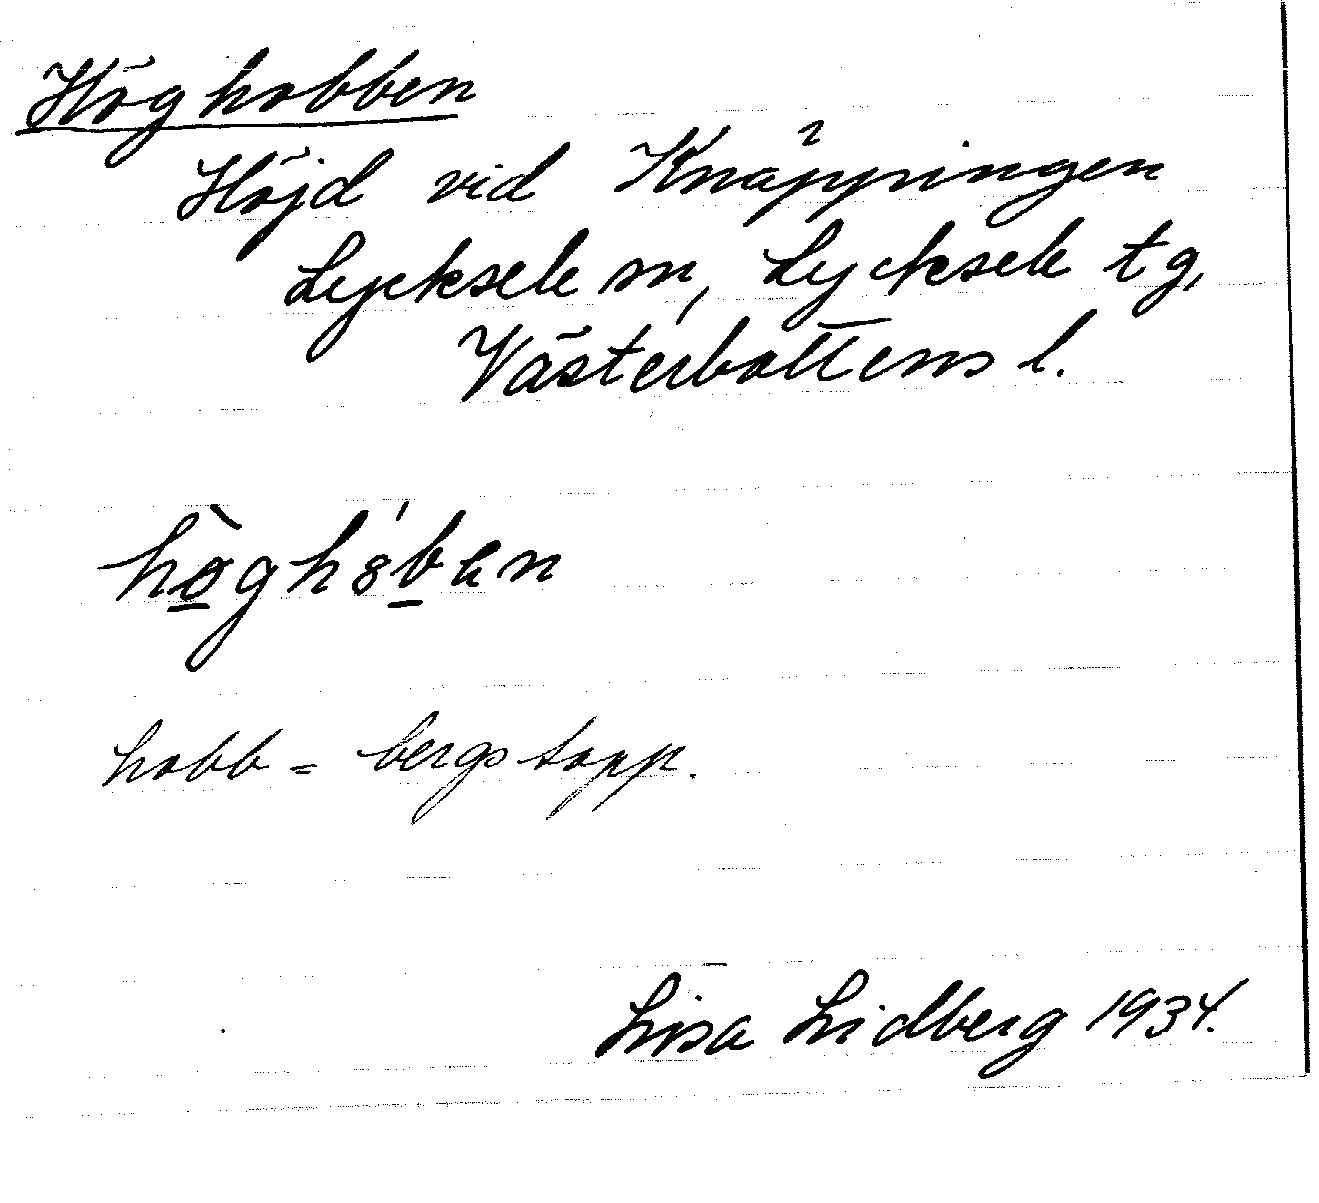 Höghobben
Höjd vid Knäppingen
Lycksele sn, Lycksele tg,
Västerbottens l.
hobb = bergstopp.
Lisa Lidberg 1934.